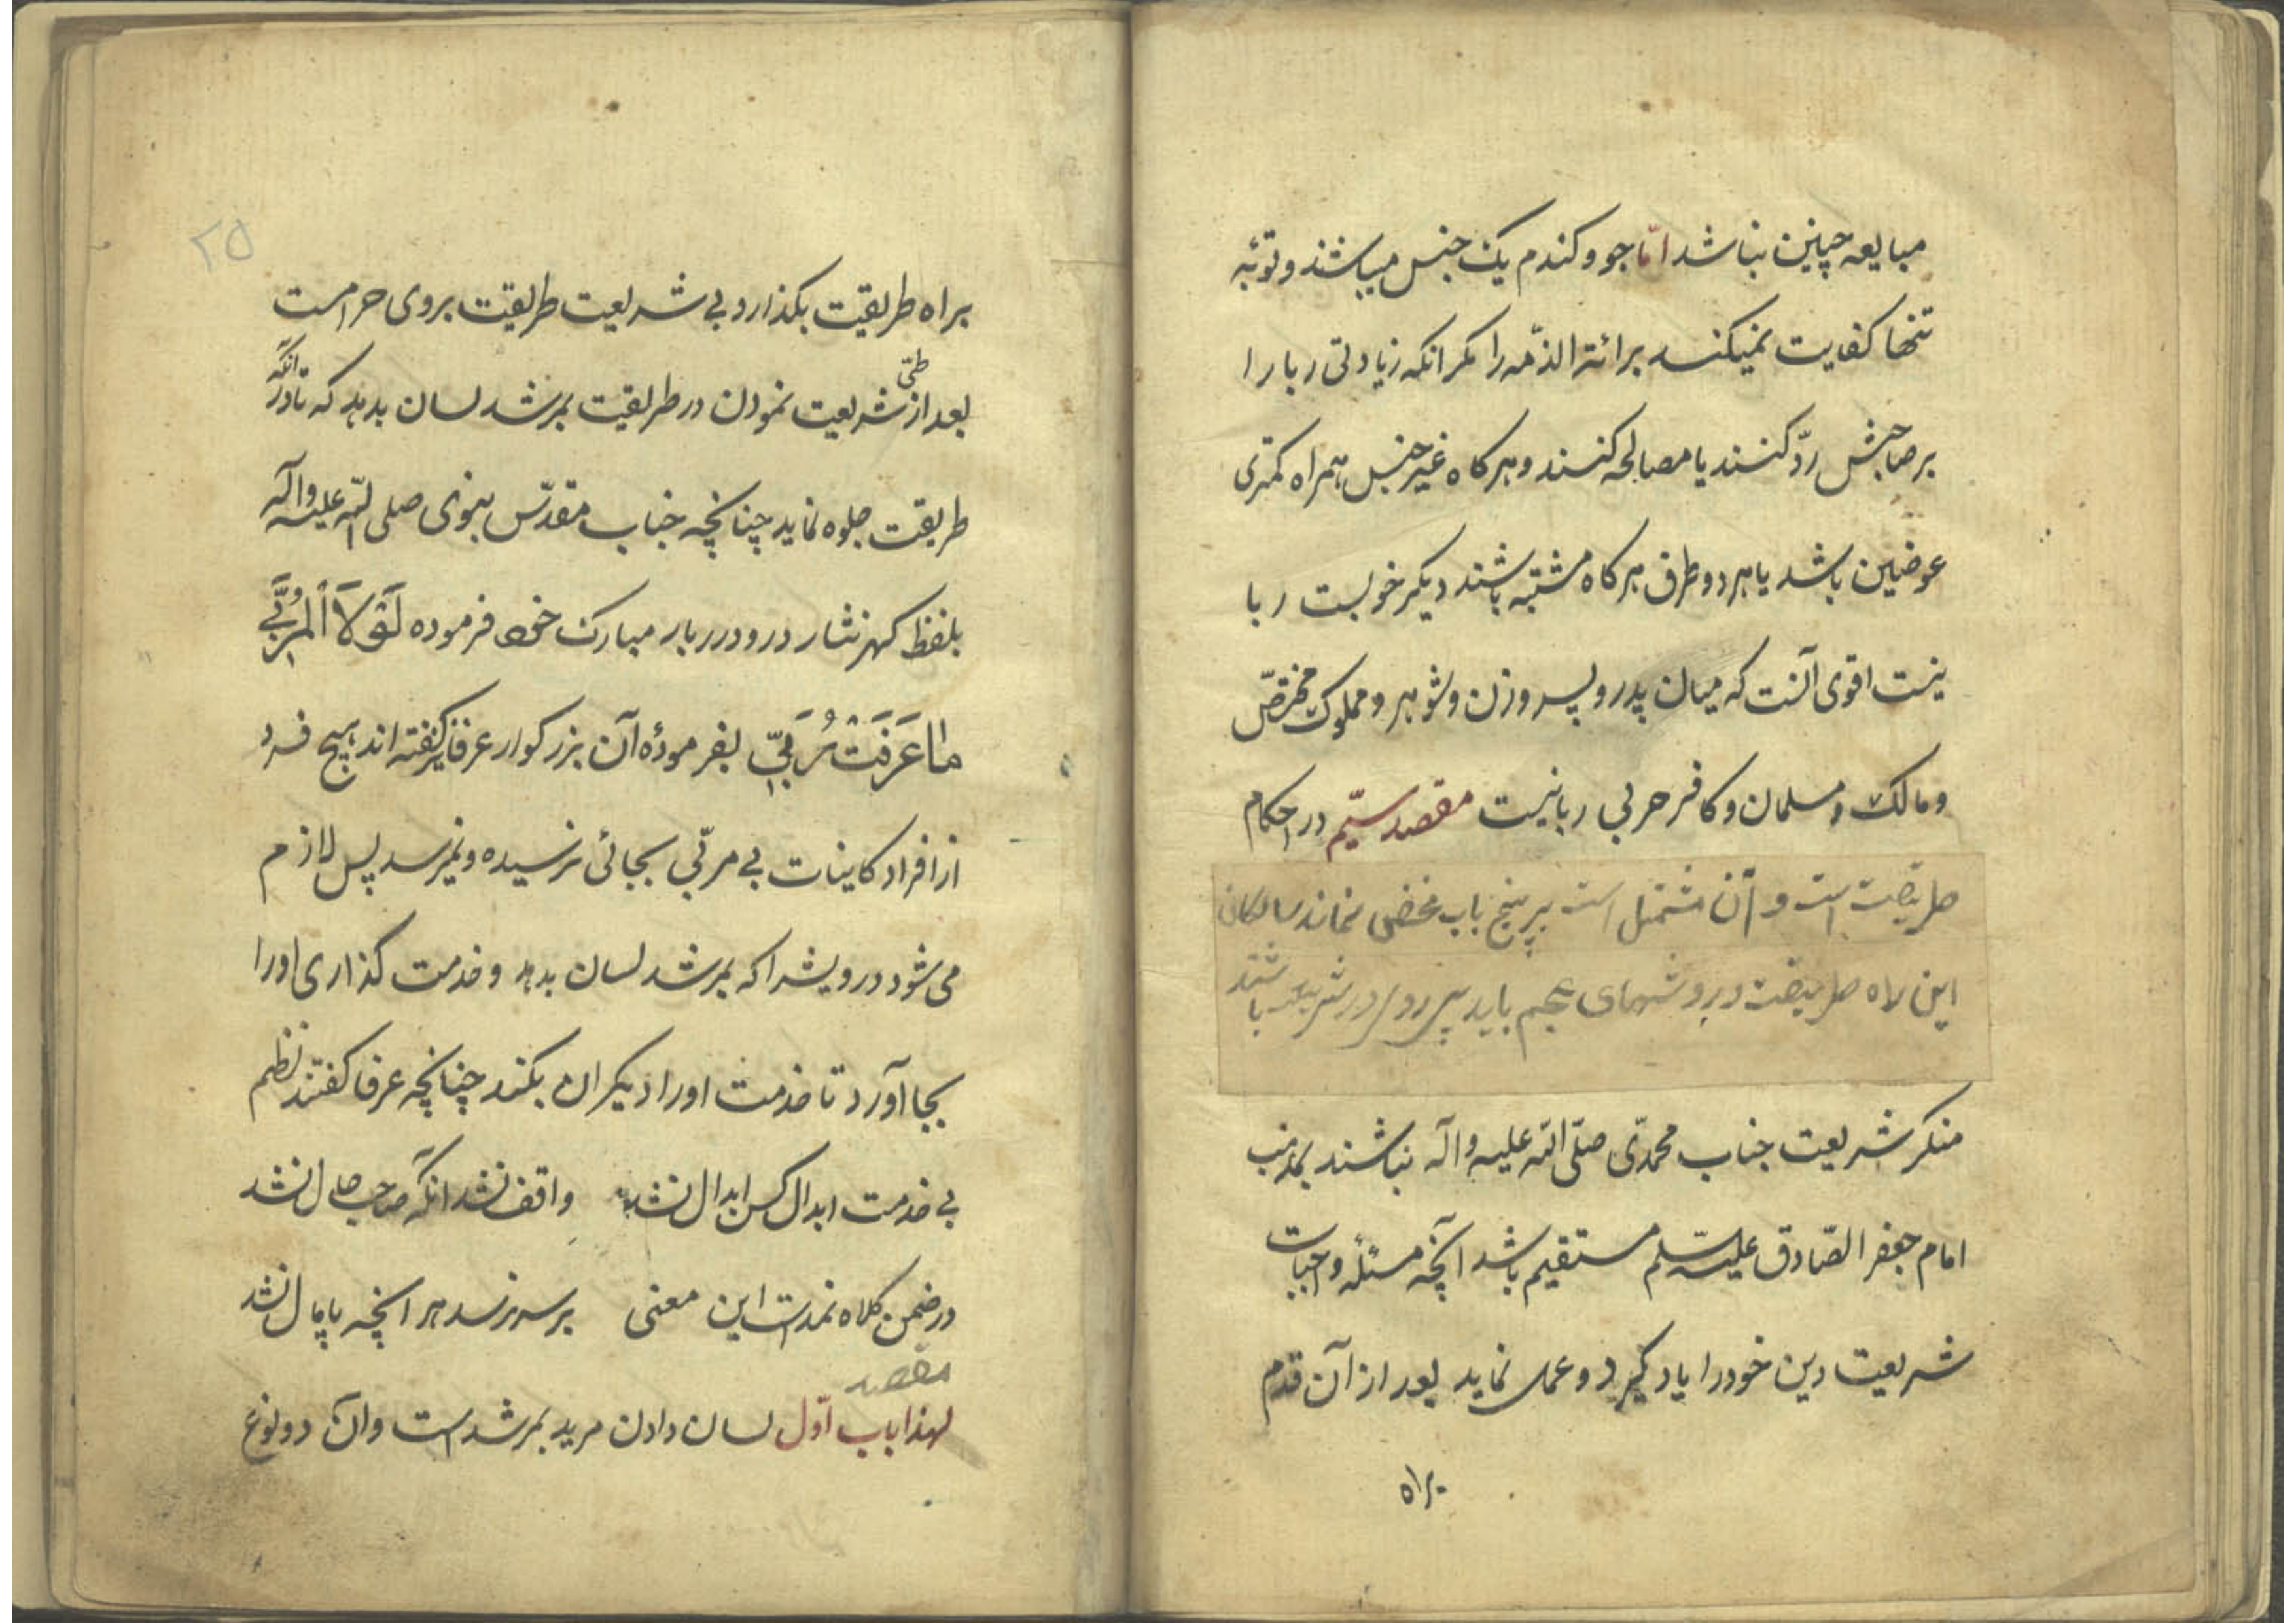 مبایعه چنین نباشد امّا جو و کندم یک جنس میباشند و توبه
تنها کفایت نمیکند برائة الذمّه را مکر انکه زیادتی ربا را
بر صاحبش ردّ کنند یا مصالحه کنند و هرکاه غیر جنس همراه کمتری
عوضین باشد یا هر دو طرف هرکاه مشتبه باشند دیکر خوبست ربا
نیست اقوی آنست که میان پدر و پسر و زن و شوهر و مملوک مختصّ
و مالک و مسلمان و کافر حربی ربا نیست مقصد سیّم در احکام
طریقت است و آن مشتمل است بر پنج باب مخفی نماند سالکان
این راه طریقت درویشهای عجم باید پیرو در شریعت باشند
منکر شریعت جناب محمّدی صلّی الله علیه و آله نباشند بمذهب
امام جعفر الصّادق علیه السّلم مستقیم باشد آنچه مسئله واجبات
شریعت دین خود را یاد کیرد و عمل نماید بعد از آن قدم
براه
۲۵
براه طریقت بکذارد بی شریعت طریقت بروی حرامست
بعد از طیّ شریعت نمودن در طریقت بمرشد لسان بدهد که تا در انکه
طریقت جلوه نماید چنانچه جناب مقدّس نبوی صلی الله علیه و آله
بلفظ کهر نثار درود دربار مبارک خود فرموده لَوْلَا الْمُرَبّی
مَا عَرَفْتُ رَبّی بفرمودهٔ آن بزرکوار عرفا کفته اند هیچ فرد
از افراد کاینات بی مربّی بجائی نرسیده و نمیرسد پس لازم
می شود درویش را که بمرشد لسان بدهد و خدمت کذاری او را
بجا آورد تا خدمت او را دیکران بکند چنانچه عرفا کفتند نظم
بی خدمت ابدال کس ابدال نشد واقف نشد انکه صاحب حال نشد
در ضمن کلاه نمدست این معنی بر سر نرسد هر انچه پامال نشد
مقصد
لهذا باب اوّل لسان دادن مرید بمرشد است و آن دو نوع